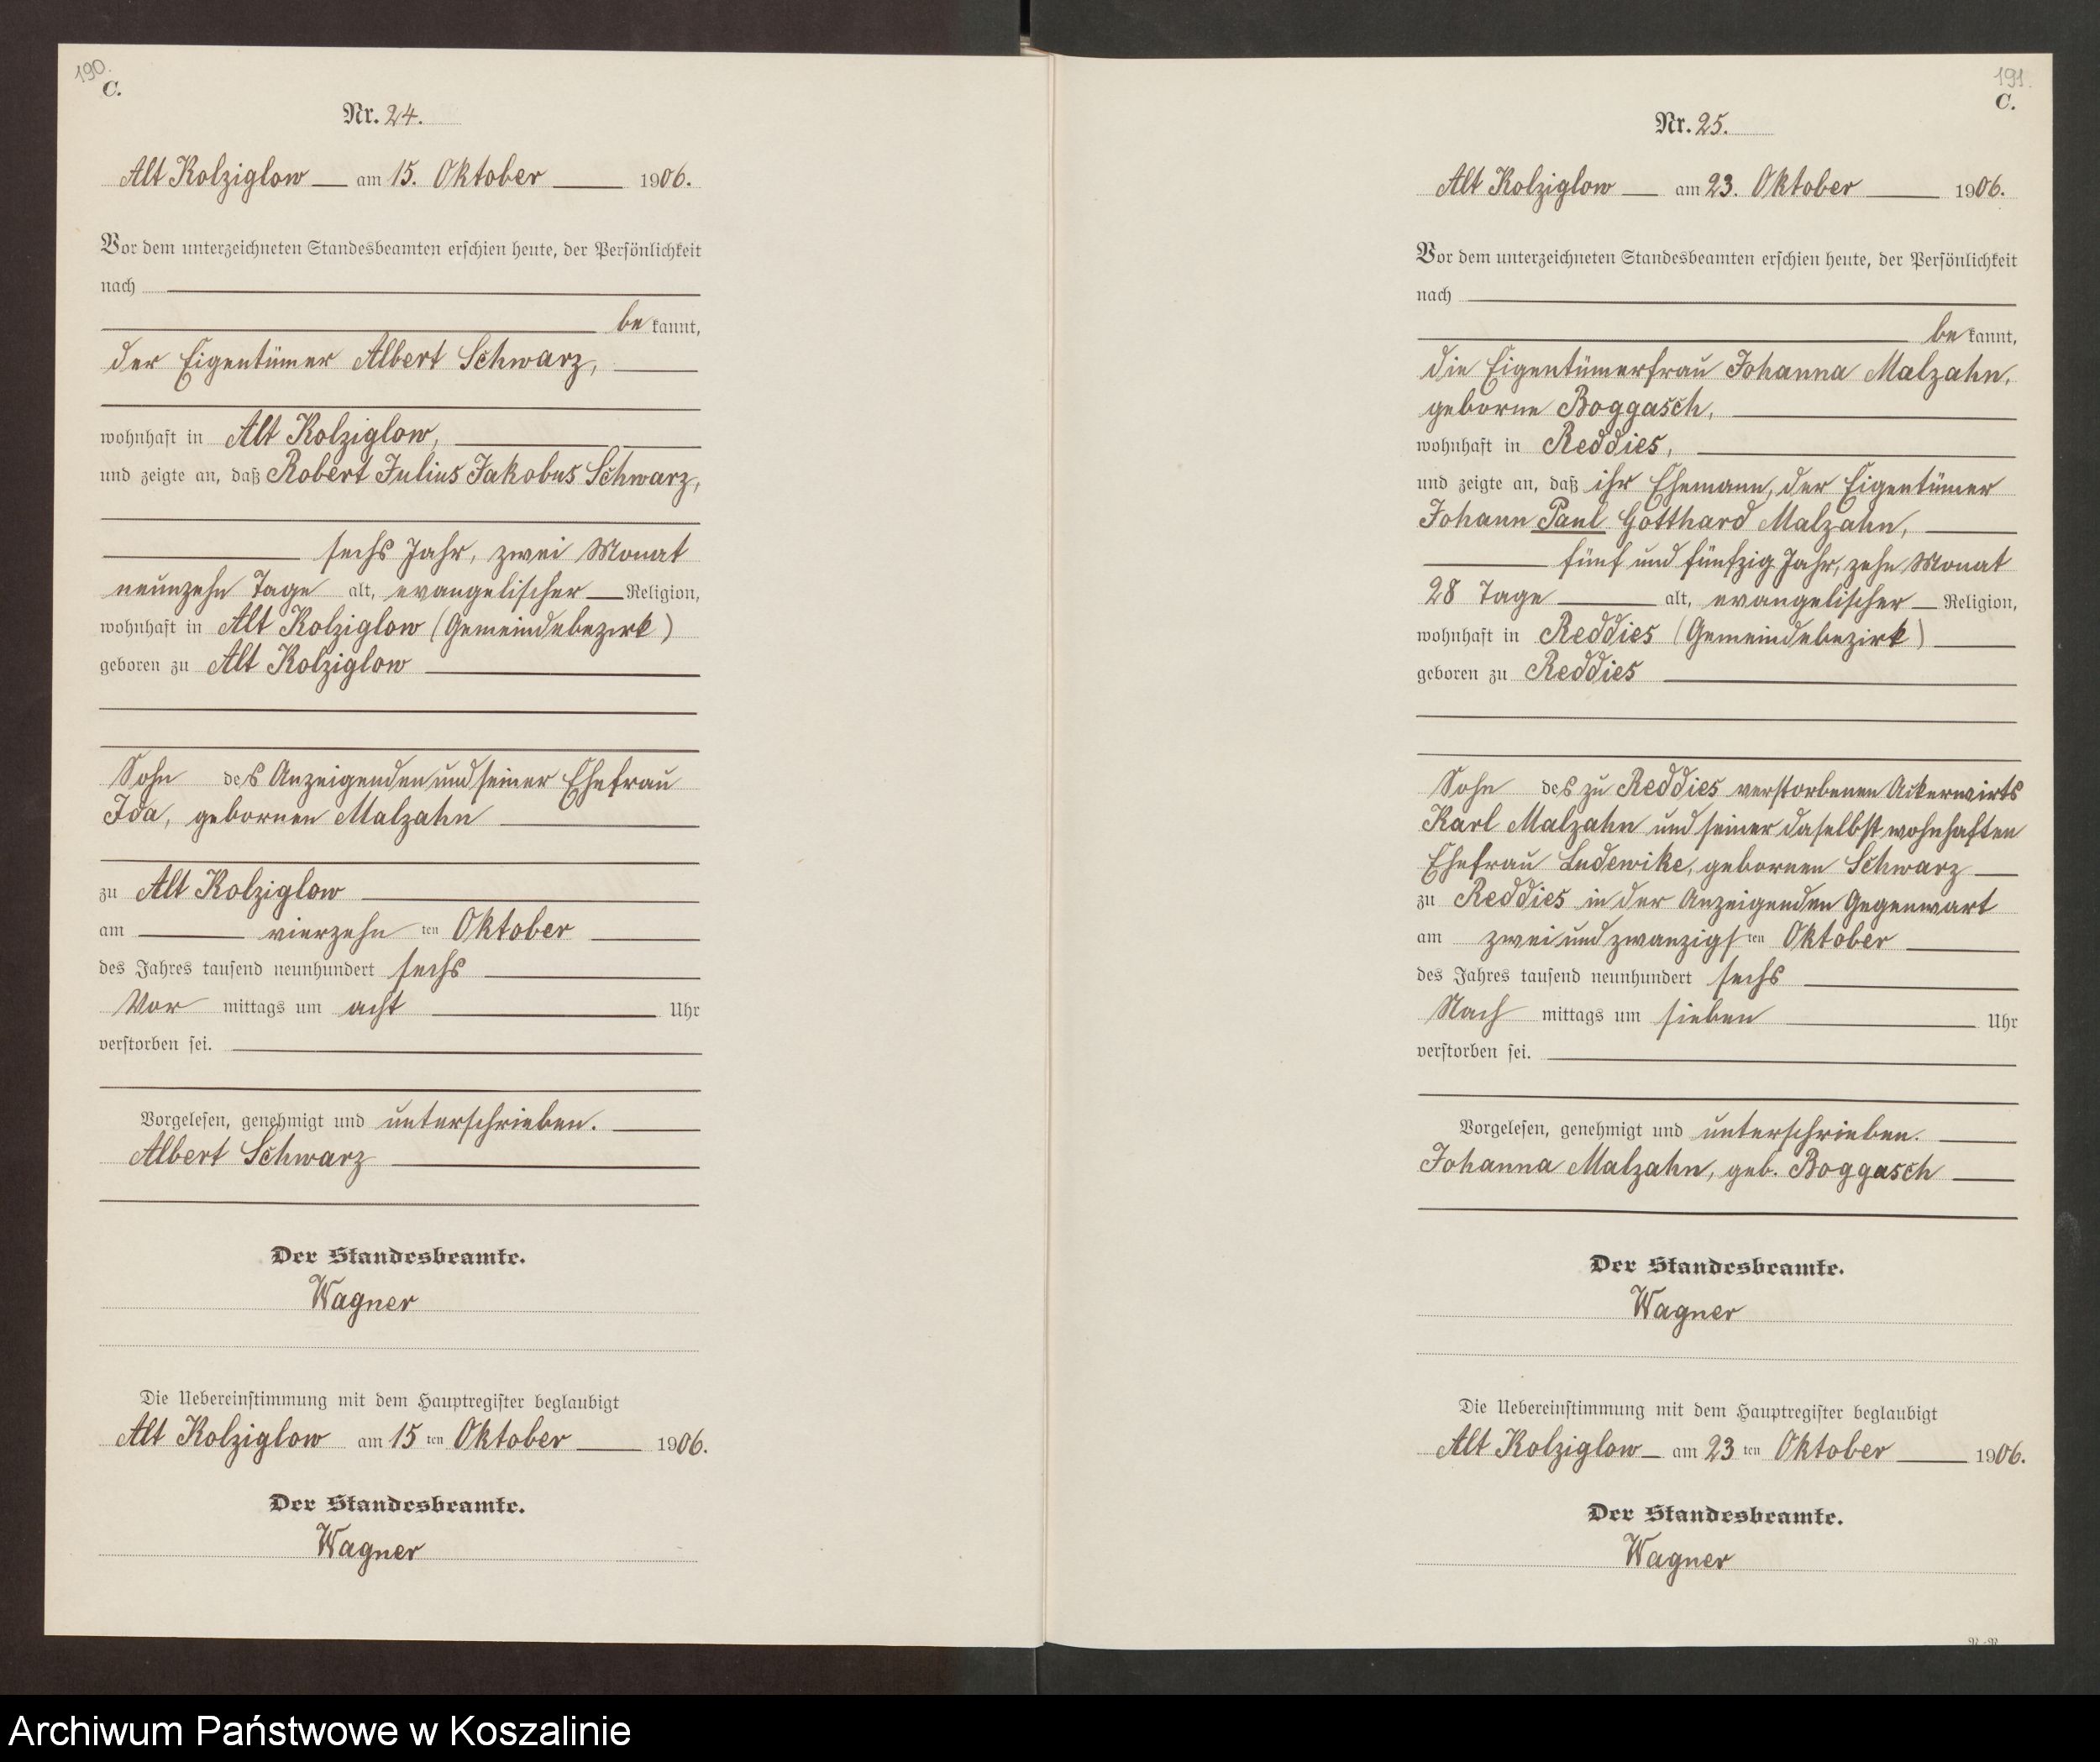 190.
C.
Nr. 24.
Alt Kolziglow am 15. Oktober 1906.
Vor dem unterzeichneten Standesbeamten erschien heute, der Persönlichkeit
nach
be kannt,
der Eigentümer Albert Schwarz,
wohnhaft in Alt Kolziglow,
und zeigte an, daß Robert Julius Jakobus Schwarz,
sechs Jahr, zwei Monat
neunzehn Tage alt, evangelischer Religion,
wohnhaft in Alt Kolziglow (Gemeindebezirk)
geboren zu Alt Kolziglow
Sohn des Anzeigenden und seiner Ehefrau
Ida, gebornen Malzahn
zu Alt Kolziglow
am vierzehn ten Oktober
des Jahres tausend neunhundert sechs
Vor mittags um acht Uhr
verstorben sei.
Vorgelesen, genehmigt und unterschrieben.
Albert Schwarz
Der Standesbeamte.
Wagner
Die Uebereinstimmung mit dem Hauptregister beglaubigt
Alt Kolziglow am 15 ten Oktober 1906.
Der Standesbeamte.
Wagner
191.
C.
Nr. 25.
Alt Kolziglow am 23. Oktober 1906.
Vor dem unterzeichneten Standesbeamten erschien heute, der Persönlichkeit
nach
be kannt,
die Eigentümerfrau Johanna Malzahn,
geborne Boggasch,
wohnhaft in Reddies,
und zeigte an, daß ihr Ehemann, der Eigentümer
Johann Paul Gotthard Malzahn,
fünf und fünfzig Jahr, zehn Monat
28 Tage alt, evangelischer Religion,
wohnhaft in Reddies (Gemeindebezirk)
geboren zu Reddies
Sohn des zu Reddies verstorbenen Ackerwirts
Karl Malzahn und seiner daselbst wohnhaften
Ehefrau Ludewike, gebornen Schwarz
zu Reddies in der Anzeigenden Gegenwart
am zwei und zwanzigs ten Oktober
des Jahres tausend neunhundert sechs
Nach mittags um sieben Uhr
verstorben sei.
Vorgelesen, genehmigt und unterschrieben.
Johanna Malzahn, geb. Boggasch
Der Standesbeamte.
Wagner
Die Uebereinstimmung mit dem Hauptregister beglaubigt
Alt Kolziglow am 23 ten Oktober 1906.
Der Standesbeamte.
Wagner
Archiwum Państwowe w Koszalinie